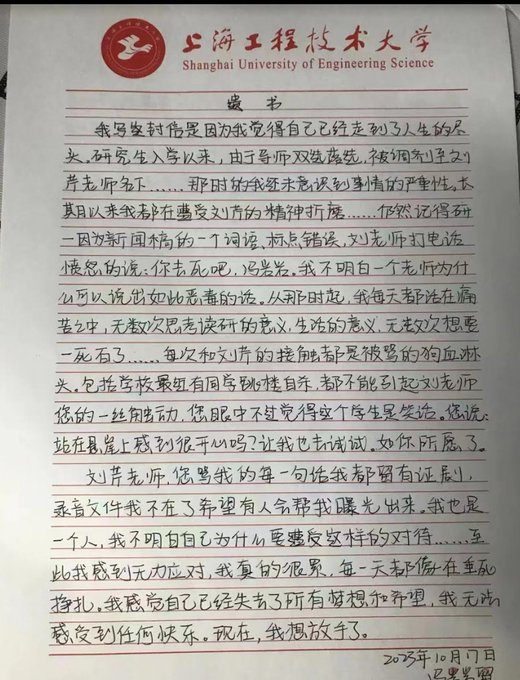 上海工程技术大学
Shanghai University of Engineering Science
遗书
我写这封信是因为我觉得自己已经走到了人生的尽
头。研究生入学以来，由于导师双选落选，被调剂至刘
芹老师名下……那时的我还未意识到事情的严重性。长
期以来我都在遭受刘芹的精神折磨……仍然记得研
一因为新闻稿的一个词语、标点错误，刘老师打电话
愤怒的说：你去死吧，冯
我不明白一个老师为什
么可以说出如此恶毒的话。从那时起，我每天都活在痛
苦之中，无数次思考读研的意义，生活的意义，无数次想要
一死百了……每次和刘芹的接触都是被骂的狗血淋
头。包括学校最近有同学跳楼自杀，都不能引起刘老师
您的一丝触动，您眼中不过觉得这个学生是笑话。您说：
站在悬崖上感到很开心吗？让我也去试试。如你所愿了。
刘芹老师，您骂我的每一句话我都留有证剧，
录音文件我不在了希望有人会帮我曝光出来。我也是
一个人，我不明白自己为什么要遭受这样的对待……至
此我感到无力应对，我真的很累，每一天都像在垂死
挣扎。我感觉自己已经失去了所有梦想和希望，我无法
感受到任何快乐。现在，我想放手了。
2023年10月17日
冯